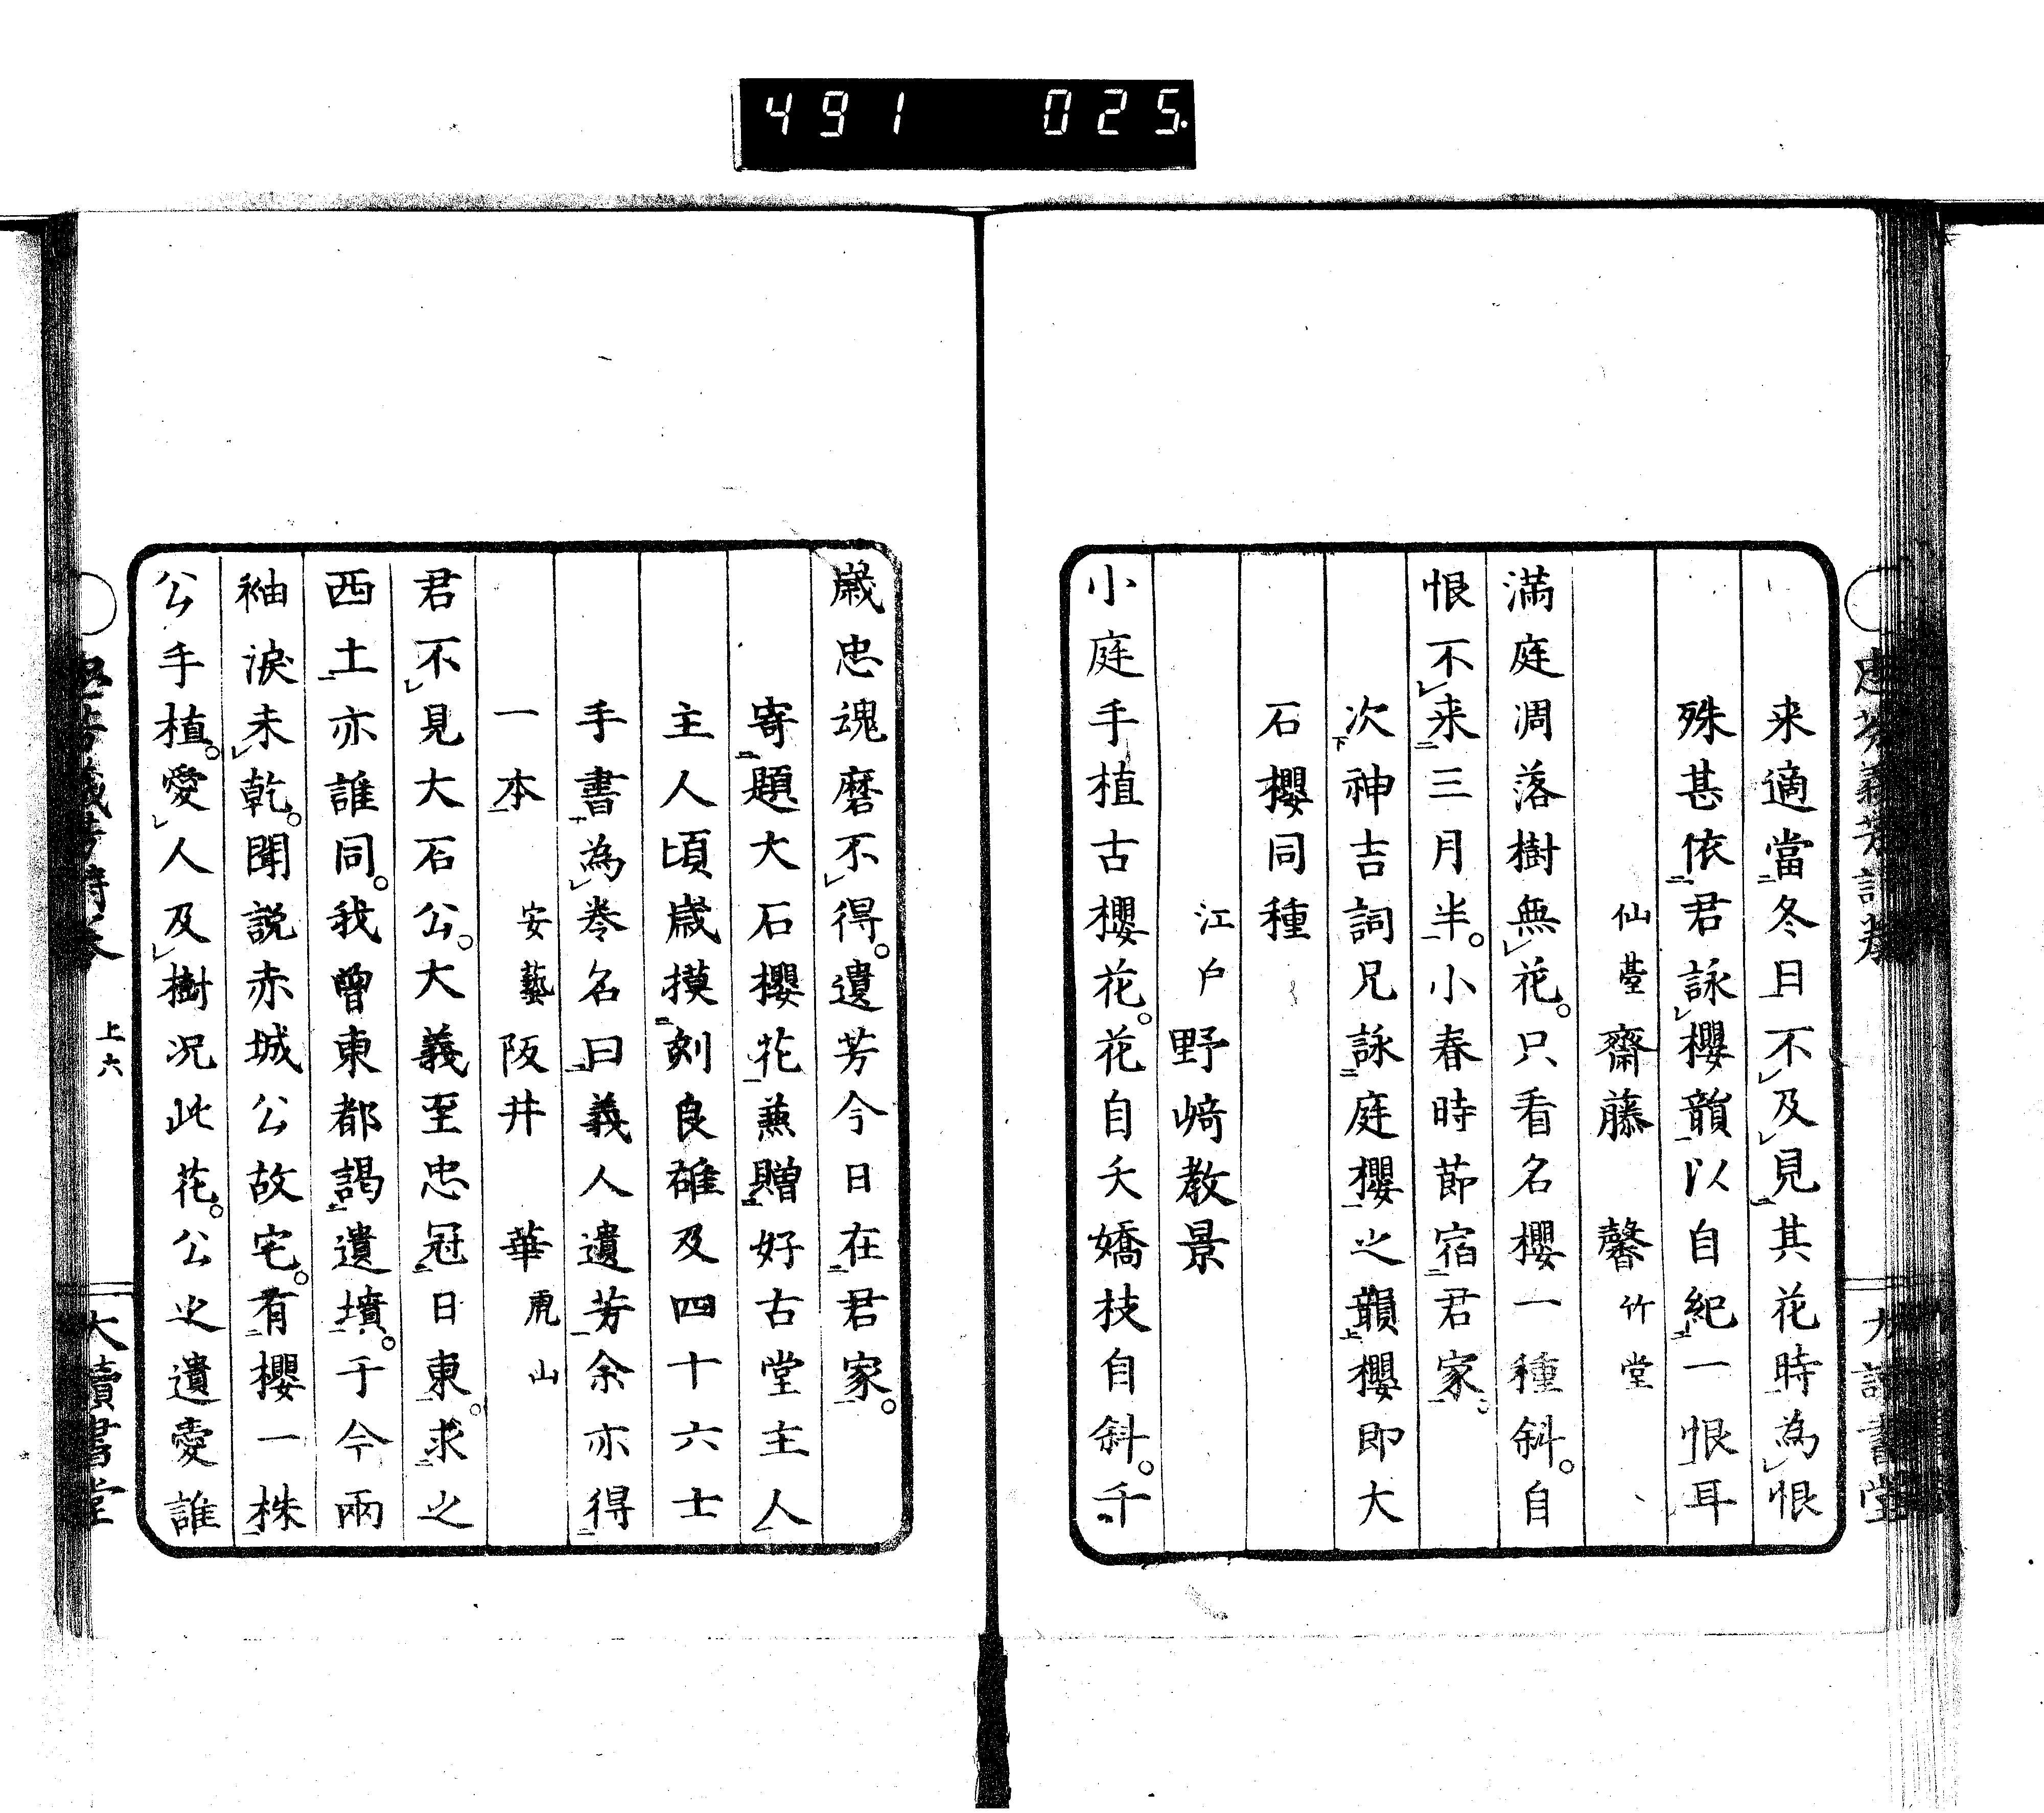 491 025.
来適當冬日不及見其花時為恨
殊甚依君詠櫻韻以自紀一恨耳
仙臺 齋藤 馨 竹堂
満庭凋落樹無花。只看名櫻一種斜。自
恨不来三月半。小春時節宿君家。
次神吉詞兄詠庭櫻之韻櫻即大
石櫻同種
江戸 野﨑教景
小庭手植古櫻花。花自夭嬌枝自斜。千
歳忠魂磨不得。遺芳今日在君家。
寄題大石櫻花蕪贈好古堂主人
主人頃歳摸刻良雄及四十六士
手書為卷名曰義人遺芳余亦得
一本 安藝 阪井 華 虎山
君不見大石公。大義至忠冠日東。求之
西土亦誰同。我曽東都謁遺墳。于今兩
袖涙未乾。聞説赤城公故宅。有櫻一株
公手植。愛人及樹况此花。公之遺愛誰
上六
大讀書堂